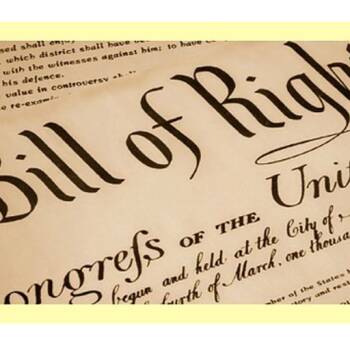 sed shall enjoy
which district shall have
with the witnesses against him; to have
his defence.
value in controversy
re-exam
Bill of Righ
ongreſs OF THE Unit
begun and held at the City of
fourth of March, one thousa
mber of the States